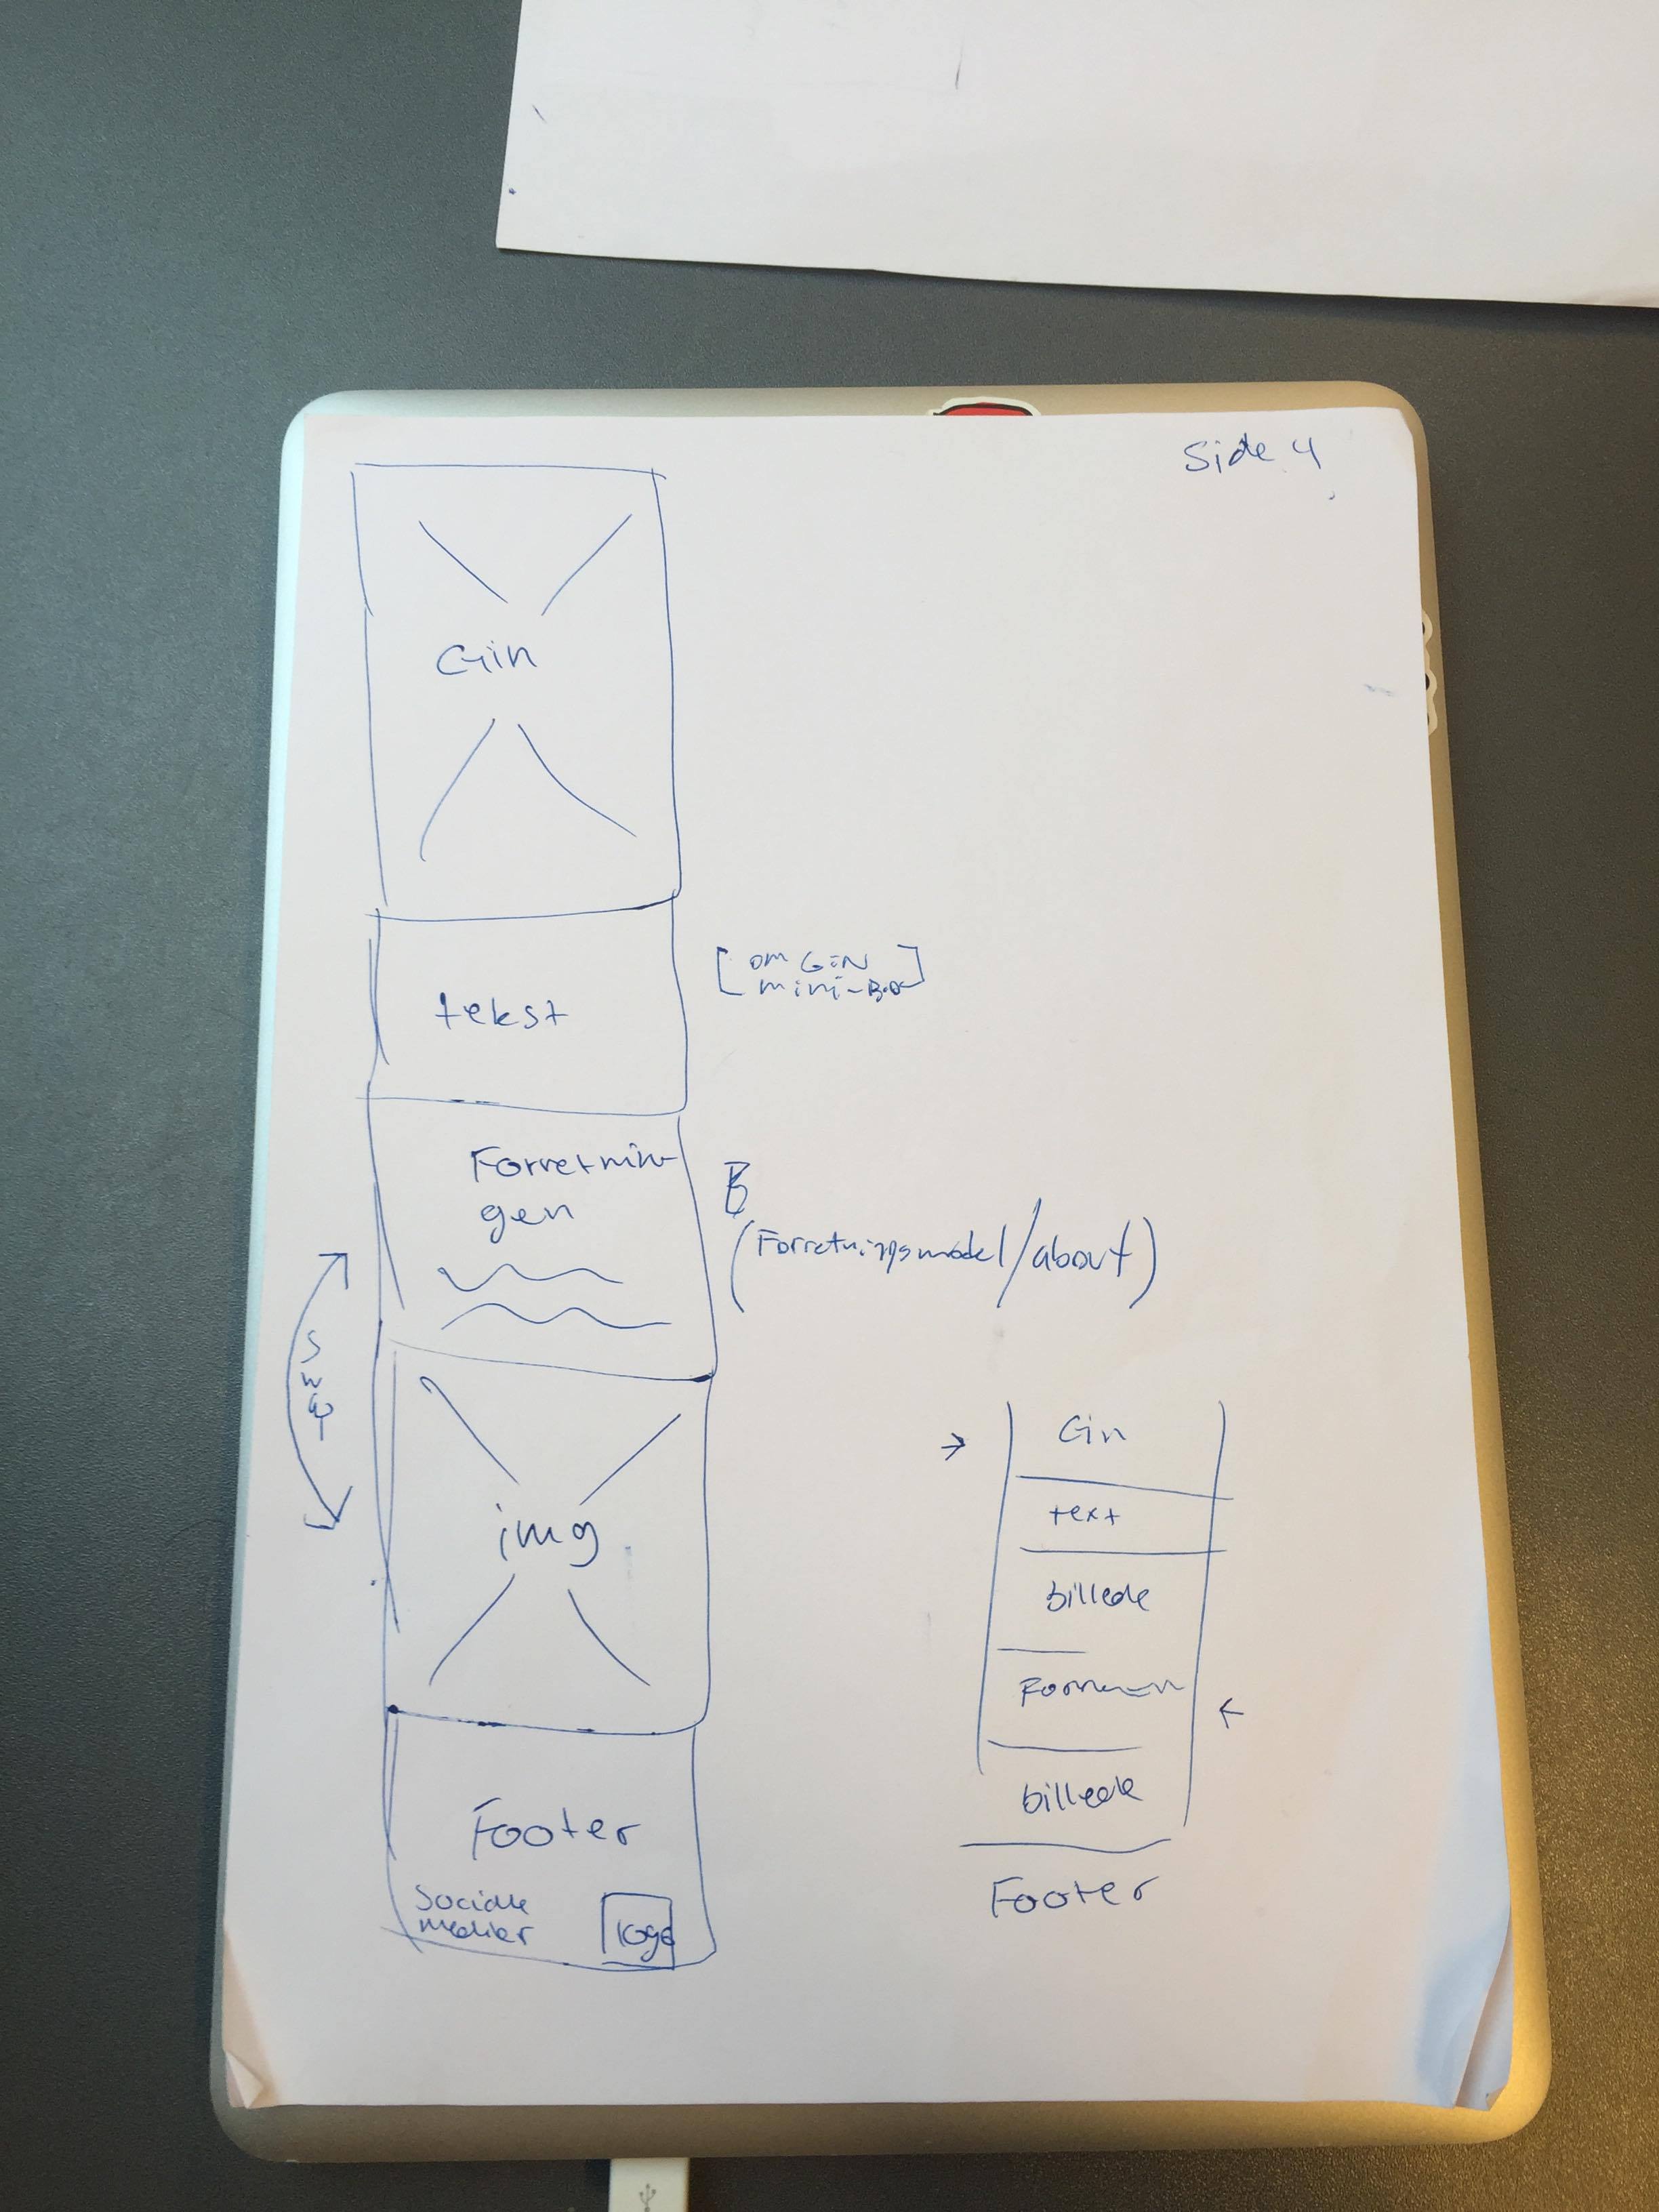 Side 4
Gin
tekst
[om GiN
mini-
Forretnin
gen
(Forretningsmodel/about)
img
Footer
Sociale
medier
logo
Gin
text
billede
billede
Footer